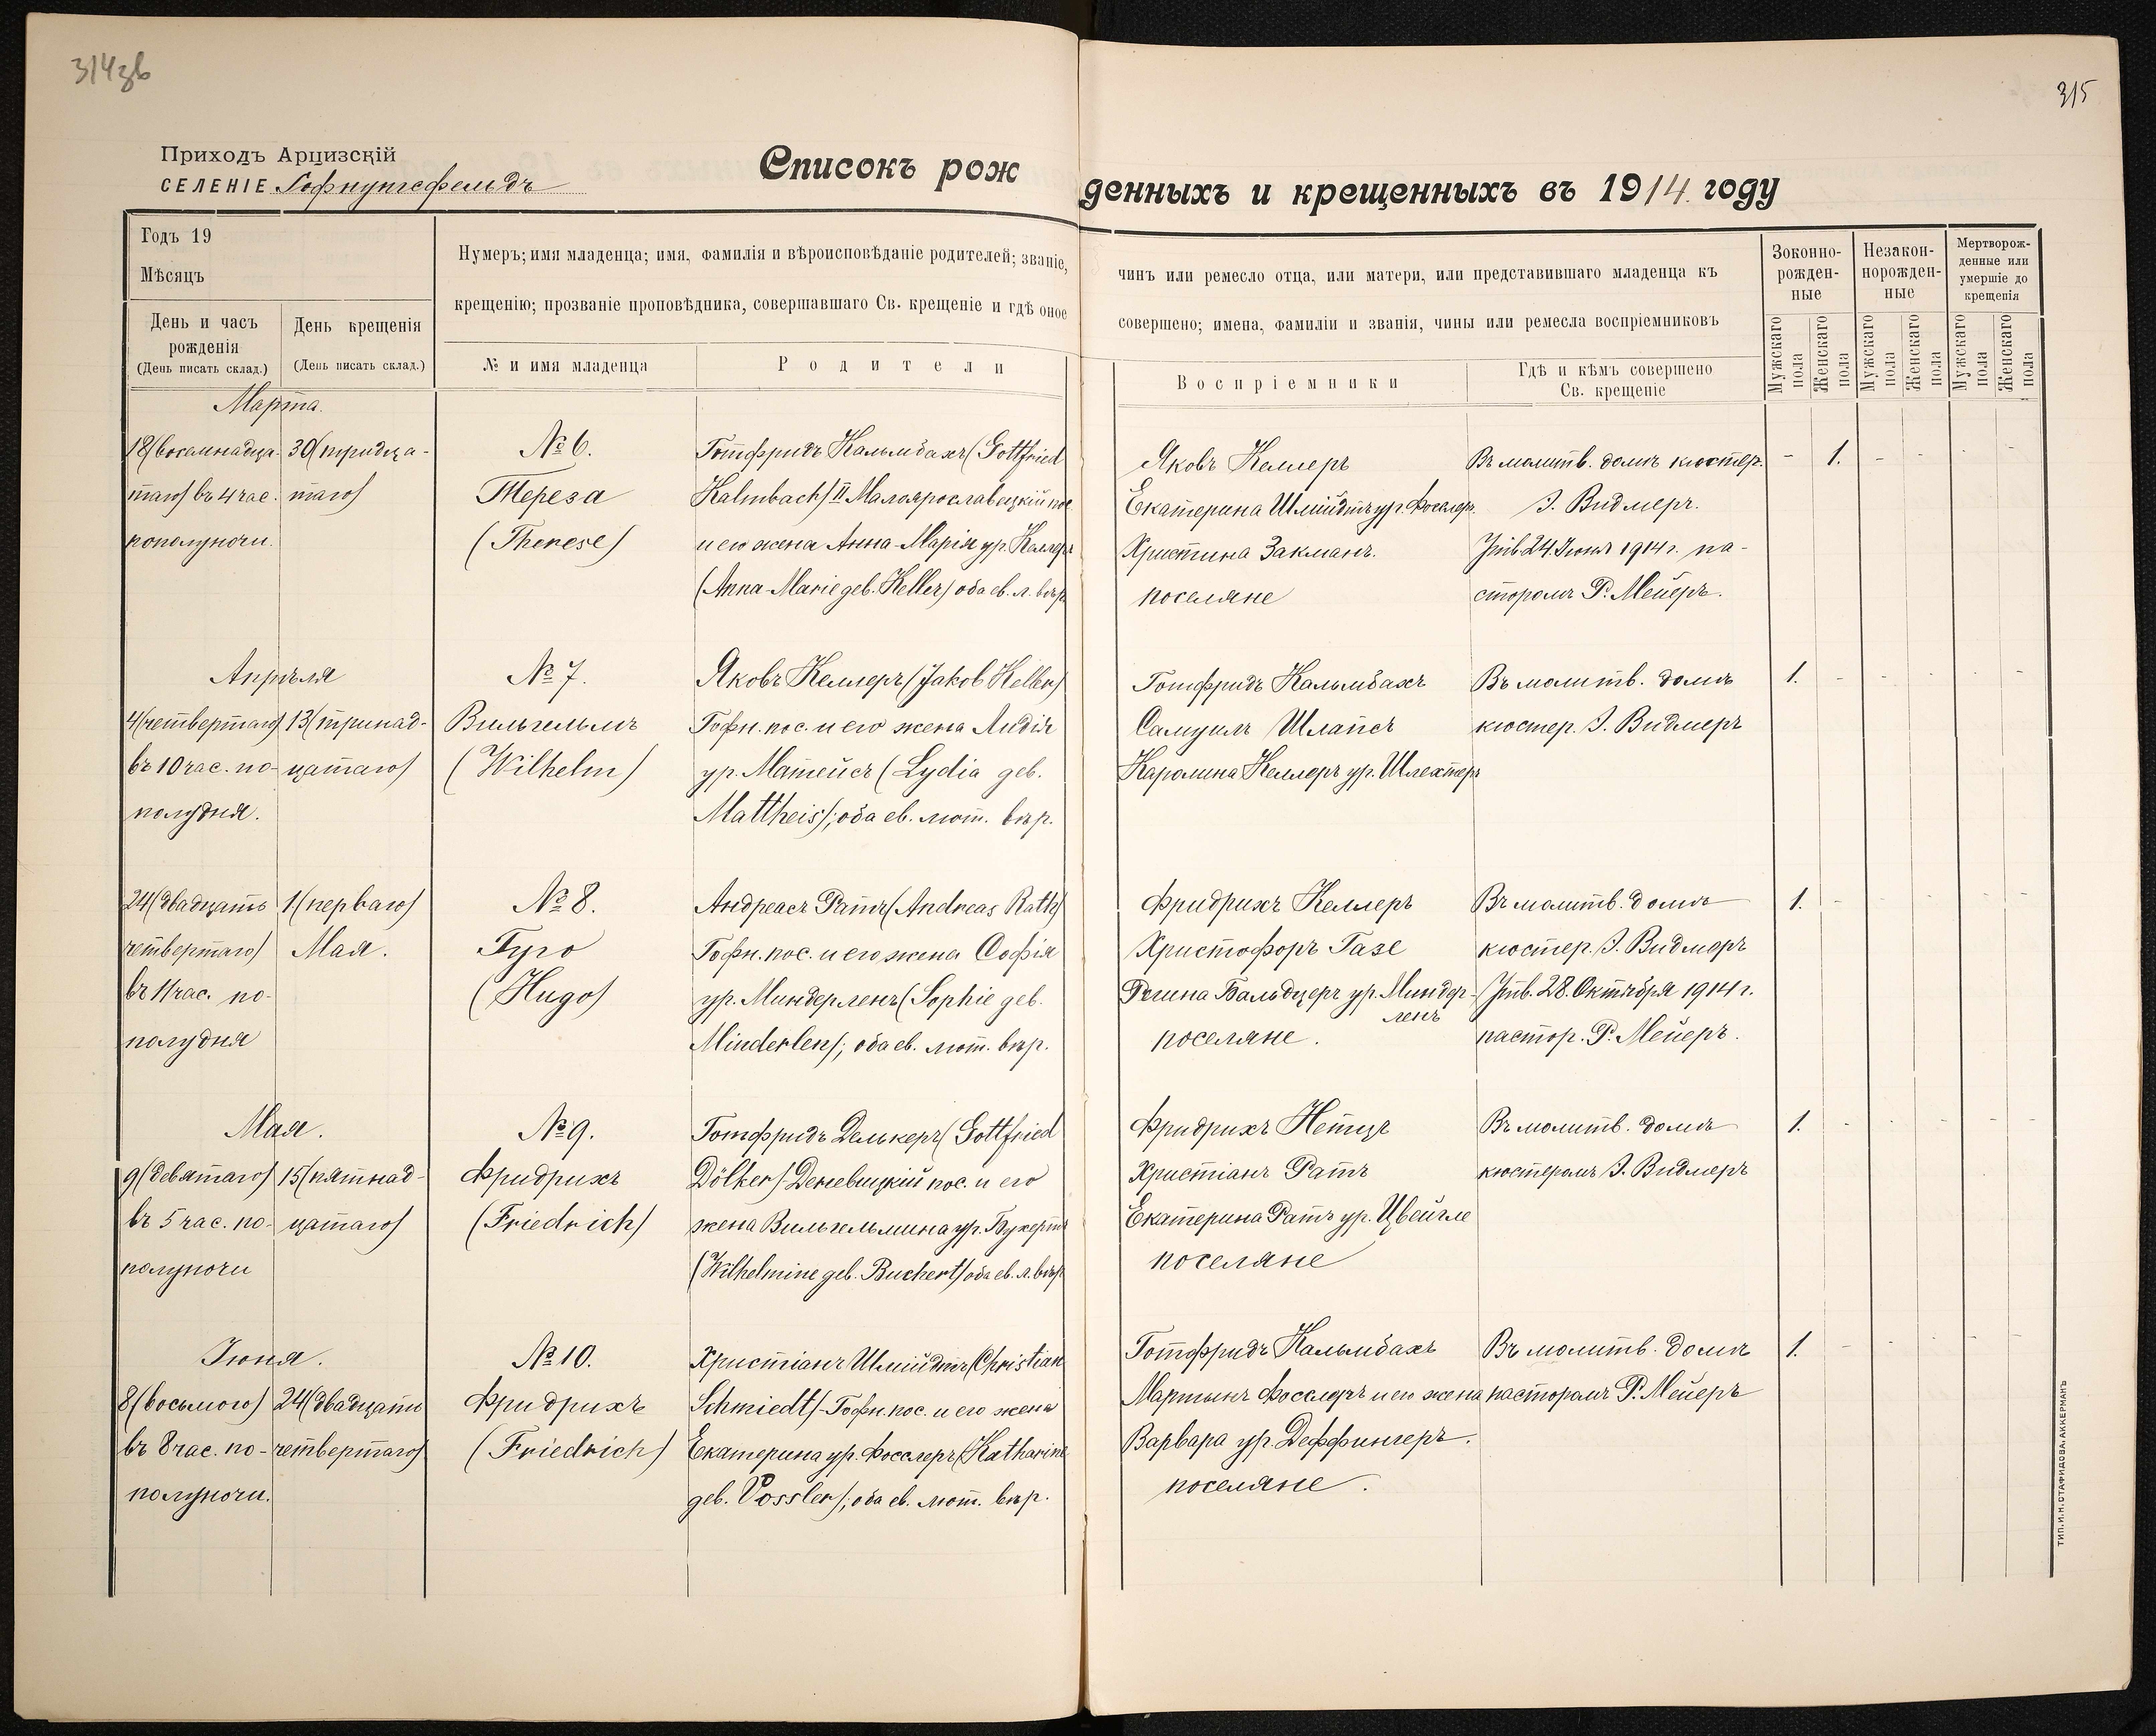 314зв
315
Приходъ Арцизскій
СЕЛЕНІЕ Гофнунгсфельдъ
Списокъ рожденныхъ и крещенныхъ въ 1914. году
Годъ 19
Мѣсяцъ
День и часъ рожденія
(День писать склад.)
День крещенія
(День писать склад.)
Нумеръ; имя младенца; имя, фамилія и вѣроисповѣданіе родителей; званіе,
чинъ или ремесло отца, или матери, или представившаго младенца къ
крещенію; прозваніе проповѣдника, совершавшаго Св. крещеніе и гдѣ оное
совершено; имена, фамиліи и званія, чины или ремесла воспріемниковъ
№ и имя младенца
Родители
Воспріемники
Гдѣ и кѣмъ совершено
Св. крещеніе
Зоконно-
рожден-
ные
Незакон-
норожден-
ные
Мертворож-
денные или
умершіе до
крещенія
Мужскаго пола
Женскаго пола
Мужскаго пола
Женскаго пола
Мужскаго пола
Женскаго пола
Марта.
18(восемнадца-
таго) въ 4 час.
пополуночи.
30(тридца-
таго)
№ 6.
Тереза
(Therese)
Готфридъ Кальмбахъ (Gottfried
Kalmbach) II Малоярославецкій пос.
и его жена Анна-Марія ур. Келлеръ
(Anna-Marie geb. Keller) оба ев. л. вѣр.
Яковъ Келлеръ
Екатерина Шмидтъ ур. Фосслеръ.
Христина Закманъ.
поселяне
Въ молитв. домѣ кюстер.
І. Видмеръ.
Утв. 24. Іюня 1914 г. па-
сторомъ Р. Мейеръ.
- 1. - - - -
Апрѣля
4(четвертаго)
въ 10 час. по-
полудня.
13(тринад-
цатаго)
№ 7.
Вильгельмъ
(Wilhelm)
Яковъ Келлеръ (Jakob Keller)
Гофн. пос. и его жена Лидія
ур. Матейсъ (Lydia geb.
Mattheis); оба ев. лют. вѣр.
Готфридъ Кальмбахъ
Самуилъ Шлапсъ
Каролина Келлеръ ур. Шлехтеръ
Въ молитв. домѣ
кюстер. І. Видмеръ
1. - - - - -
24(двадцать
четвертаго)
въ 11 час. по-
полудня
1(перваго)
Мая.
№ 8.
Гуго
(Hugo)
Андреасъ Ратъ (Andreas Rath)
Гофн. пос. и его жена Софія
ур. Миндерленъ (Sophie geb.
Minderlen); оба ев. лют. вѣр.
Фридрихъ Келлеръ
Христофоръ Газе
Регина Бальдцеръ ур. Миндер-
ленъ
поселяне.
Въ молитв. домѣ
кюстер. І. Видмеръ
Утв. 28. Октября 1914 г.
пастор. Р. Мейеръ.
1. - - - - -
Мая.
9(девятаго)
въ 5 час. по-
полуночи
15(пятнад-
цатаго)
№ 9.
Фридрихъ
(Friedrich)
Готфридъ Делькеръ (Gottfried
Dölker) Деневицкій пос. и его
жена Вильгельмина ур. Бухертъ
(Wilhelmine geb. Buchert) оба ев. л. вѣр.
Фридрихъ Нетцъ
Христіанъ Ратъ
Екатерина Ратъ ур. Цвейгле
поселяне
Въ молитв. домѣ
кюстеромъ І. Видмеръ
1. - - - - -
Іюня.
8(восьмого)
въ 8 час. по-
полуночи.
24(двадцать
четвертаго)
№ 10.
Фридрихъ
(Friedrich)
Христіанъ Шмидтъ (Christian
Schmiedt)-Гофн. пос. и его жена
Екатерина ур. Фосслеръ (Katharine
geb. Vossler); оба ев. лют. вѣр.
Готфридъ Кальмбахъ
Мартынъ Фосслеръ и его жена
Варвара ур. Деффингеръ.
поселяне.
Въ молитв. домѣ
пасторомъ Р. Мейеръ
1. - - - - -
ТИП. И. Н. СТАФИДОВА, АККЕРМАНЪ